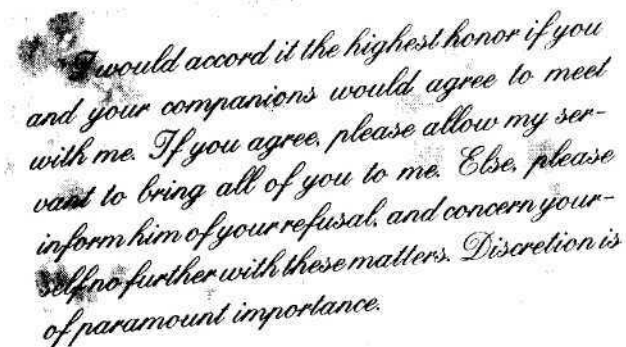 I would accord it the highest honor if you
and your companions would agree to meet
with me. If you agree, please allow my ser-
vant to bring all of you to me. Else, please
inform him of your refusal, and concern your-
self no further with these matters. Discretion is
of paramount importance.